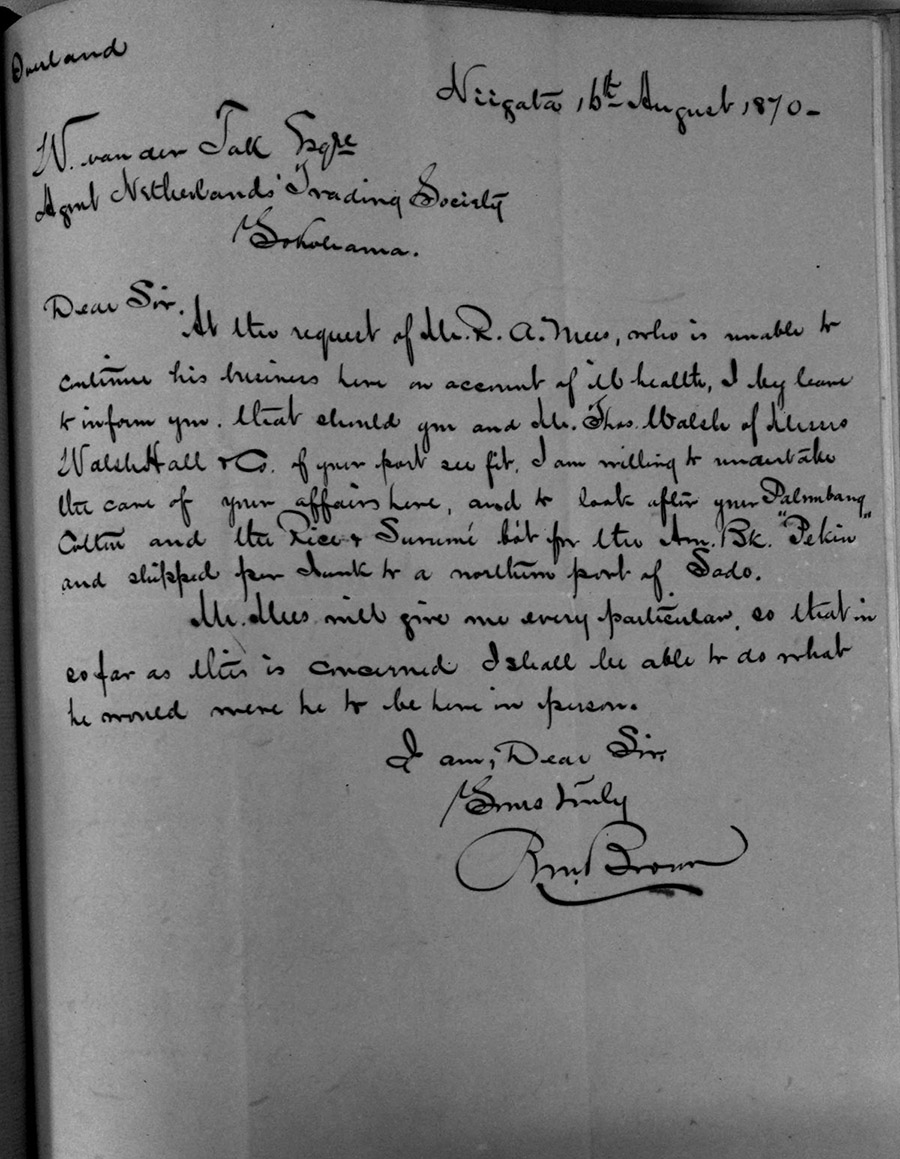 Overland
Niigata 16th August 1870-
W. van der Tak Esqre
Agent Netherlands' Trading Society
Yokohama.
Dear Sir.
At the request of Mr. R. A. Mees, who is unable to
continue his business here on account of ill health, I beg leave
to inform you. that should you and Mr. Thos. Walsh of Messrs
Walsh Hall & Co. of your port see fit, I am willing to undertake
the care of your affairs here, and to look after your Palembang
Cotton and the Rice & Surumé bôt for the Am. Bk. "Pekin"
and shipped per Junk to a northern port of Sado.
Mr. Mees will give me every particular, so that in
so far as this is concerned I shall be able to do what
he would were he to be here in person.
I am, Dear Sir,
Yours truly
Brown